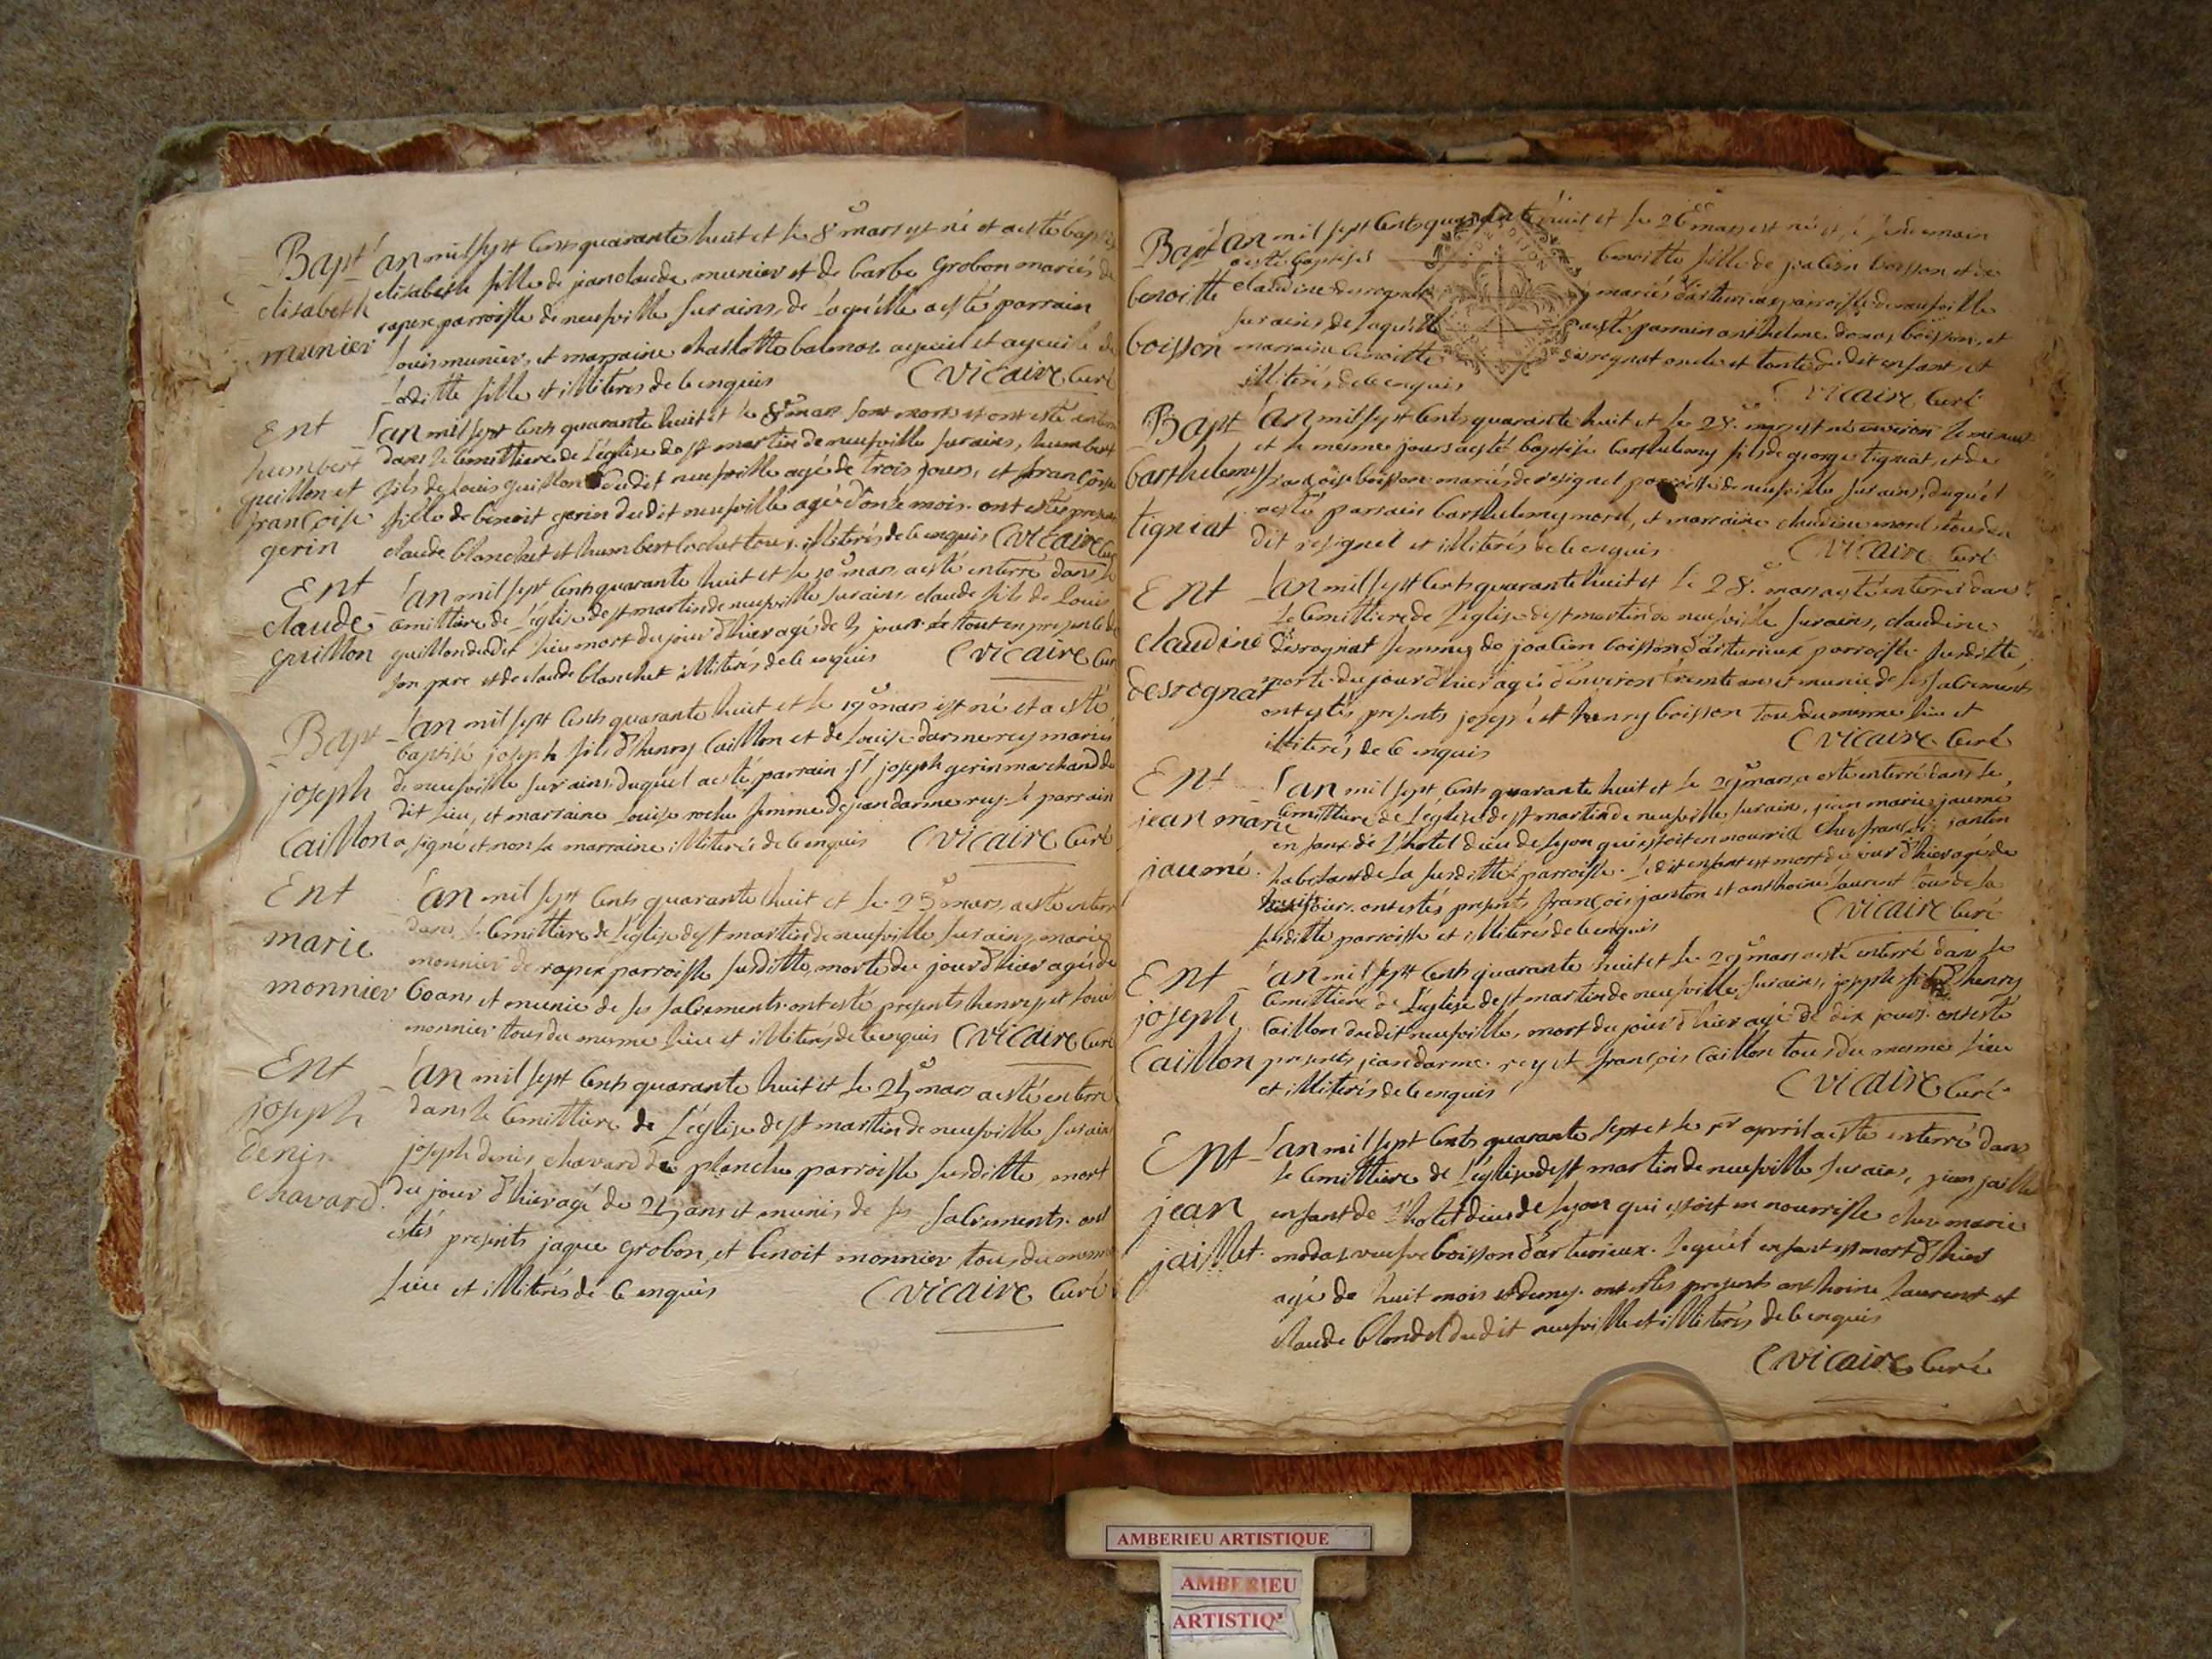 Bapt L'an mil sept cents quarante huit et le 8e mars est né et a esté bapt
elisabeth elisabeth fille de jean claude munier et de barbe Grobon mariés de
munier rapex parroisse de neufville surains, de laquelle a esté parrain
Louis munier, et marraine charlotte balmos ayeul et ayeuile de
laditte fille et illiterés de ce enquis C vicaire Curé
Ent L'an mil sept cents quarante huit et le 8e mars sont morts et ont esté enterr
humbert dans le cemittiere de l'église de st martin de neufville surains, humbert
guillon et fils de Louis guillon dudit neufville agé de trois jours, et françoise
françoise fille de benoit gerin dudit neufville agé d'onze mois. ont estés presens
gerin claude blanchet et humbert cochet tous illiterés de ce enquis C vicaire Cur
Ent L'an mil sept cents quarante huit et le 10e mars a esté enterré dans le
claude cemittiere de l'église de st martin de neufville surains claude fils de Louis
guillon guillon dudit lieu mort du jour d'hier agé de 5 jours le tout en presence de
son pere et de claude blanchet illiterés de ce enquis C vicaire Cur
Bapt L'an mil sept cents quarante huit et le 19e mars est né et a esté
baptisé joseph fils d'henry Caillon et de Louise darmerey mariés
joseph de neufville surains, duquel a esté parrain sr joseph gerin marchand du
dit lieu, et marraine Louise roche femme de jean darmerey. le parrain
Caillon a signé et non la marraine illiterée de ce enquis C vicaire Curé
Ent L'an mil sept cents quarante huit et le 25e mars, a esté enterr
dans le cemittiere de l'église de st martin de neufville surains, marie
marie monnier de rapex parroisse susditte, morte du jour d'hier agée de
monnier 60 ans et munie de ses sacrements. ont esté presents henry et Louis
monnier tous du mesme lieu et illiterés de ce enquis C vicaire Curé
Ent L'an mil sept cents quarante huit et le 25e mars a esté enterré
joseph dans le cemittiere de l'église de st martin de neufville surain
denis joseph denis chavard de planche parroisse susditte, mort
chavard. du jour d'hier agé de 25 ans et munis de ses sacrements. ont
estés presents jaque Grobon, et benoit monnier tous du mesme
lieu et illiterés de ce enquis C vicaire Curé
Bapt L'an mil sept cents quarante huit et le 26e mars est né et le lendemain
a esté baptisée benoitte fille de joachim boisson et de
benoitte claudine desrognat mariés d'arturieux parroisse de neufville
surains, de laquelle a esté parrain anthelme boisson, et
boisson marraine benoitte desrognat oncle et tante dudit enfant, et
illiterés de ce enquis C vicaire Curé
Bapt L'an mil sept cents quarante huit et le 28e mars est né environ le minuit
et le mesme jours a esté baptisé barthelemy fils de george tigniat, et de
barthelemy françoise boisson mariés de resignel parroisse de neufville surains, duquel
a esté parrain barthelemy morel, et marraine claudine morel tous du
tigniat dit resignel et illiterés de ce enquis C vicaire Curé
Ent L'an mil sept cents quarante huit et le 28e mars a esté enterrée dans
le cemittiere de l'église de st martin de neufville surains, claudine
claudine desrognat femme de joachim boisson d'arturieux parroisse susditte,
desrognat morte du jour d'hier agée d'environ trente ans et munie de ses sacrements
ont estés presents joseph et henry boisson tous du mesme lieu et
illiterés de ce enquis C vicaire Curé
Ent L'an mil sept cents quarante huit et le 29e mars, a esté enterré dans le
cemittiere de l'église de st martin de neufville surains, jean marie jaumé
jean marie enfant de l'hotel dieu de Lyon qui estoit en nourrice chez françois janton
jaumé. habitant de la susditte parroisse. ledit enfant est mort du jour d'hier agé de
huit jours. ont estés presents françois janton et anthoine Laurent tous de la
susditte parroisse et illiterés de ce enquis C vicaire Curé
Ent L'an mil sept cents quarante huit et le 29e mars a esté enterré dans le
cemittiere de l'église de st martin de neufville surains, joseph fils d'henry
joseph Caillon dudit neufville, mort du jour d'hier agé de dix jours. ont esté
Caillon presents jean darmerey et françois Caillon tous du mesme lieu
et illiterés de ce enquis C vicaire Curé
Ent L'an mil sept cents quarante sept et le pr apvril a esté enterré dans
le cemittiere de l'église de st martin de neufville surains, jean jaillet
jean enfant de l'hotel dieu de Lyon qui estoit en nourrisse chez marie
jaillet. veufve boisson d'arturieux. lequel enfant est mort d'hier
agé de huit mois et demy. ont estés presents anthoine Laurent et
claude blondel dudit neufville et illiterés de ce enquis
C vicaire Curé
AMBERIEU ARTISTIQUE
AMBERIEU
ARTISTIQ